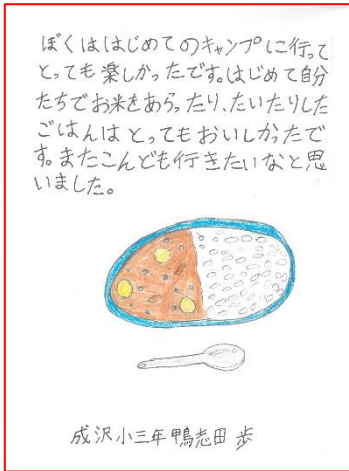 ぼくははじめてのキャンプに行って
とっても楽しかったです。はじめて自分
たちでお米をあらったり、たいたりした
ごはんはとってもおいしかったで
す。またこんども行きたいなと思
いました。
成沢小三年鴨志田 歩